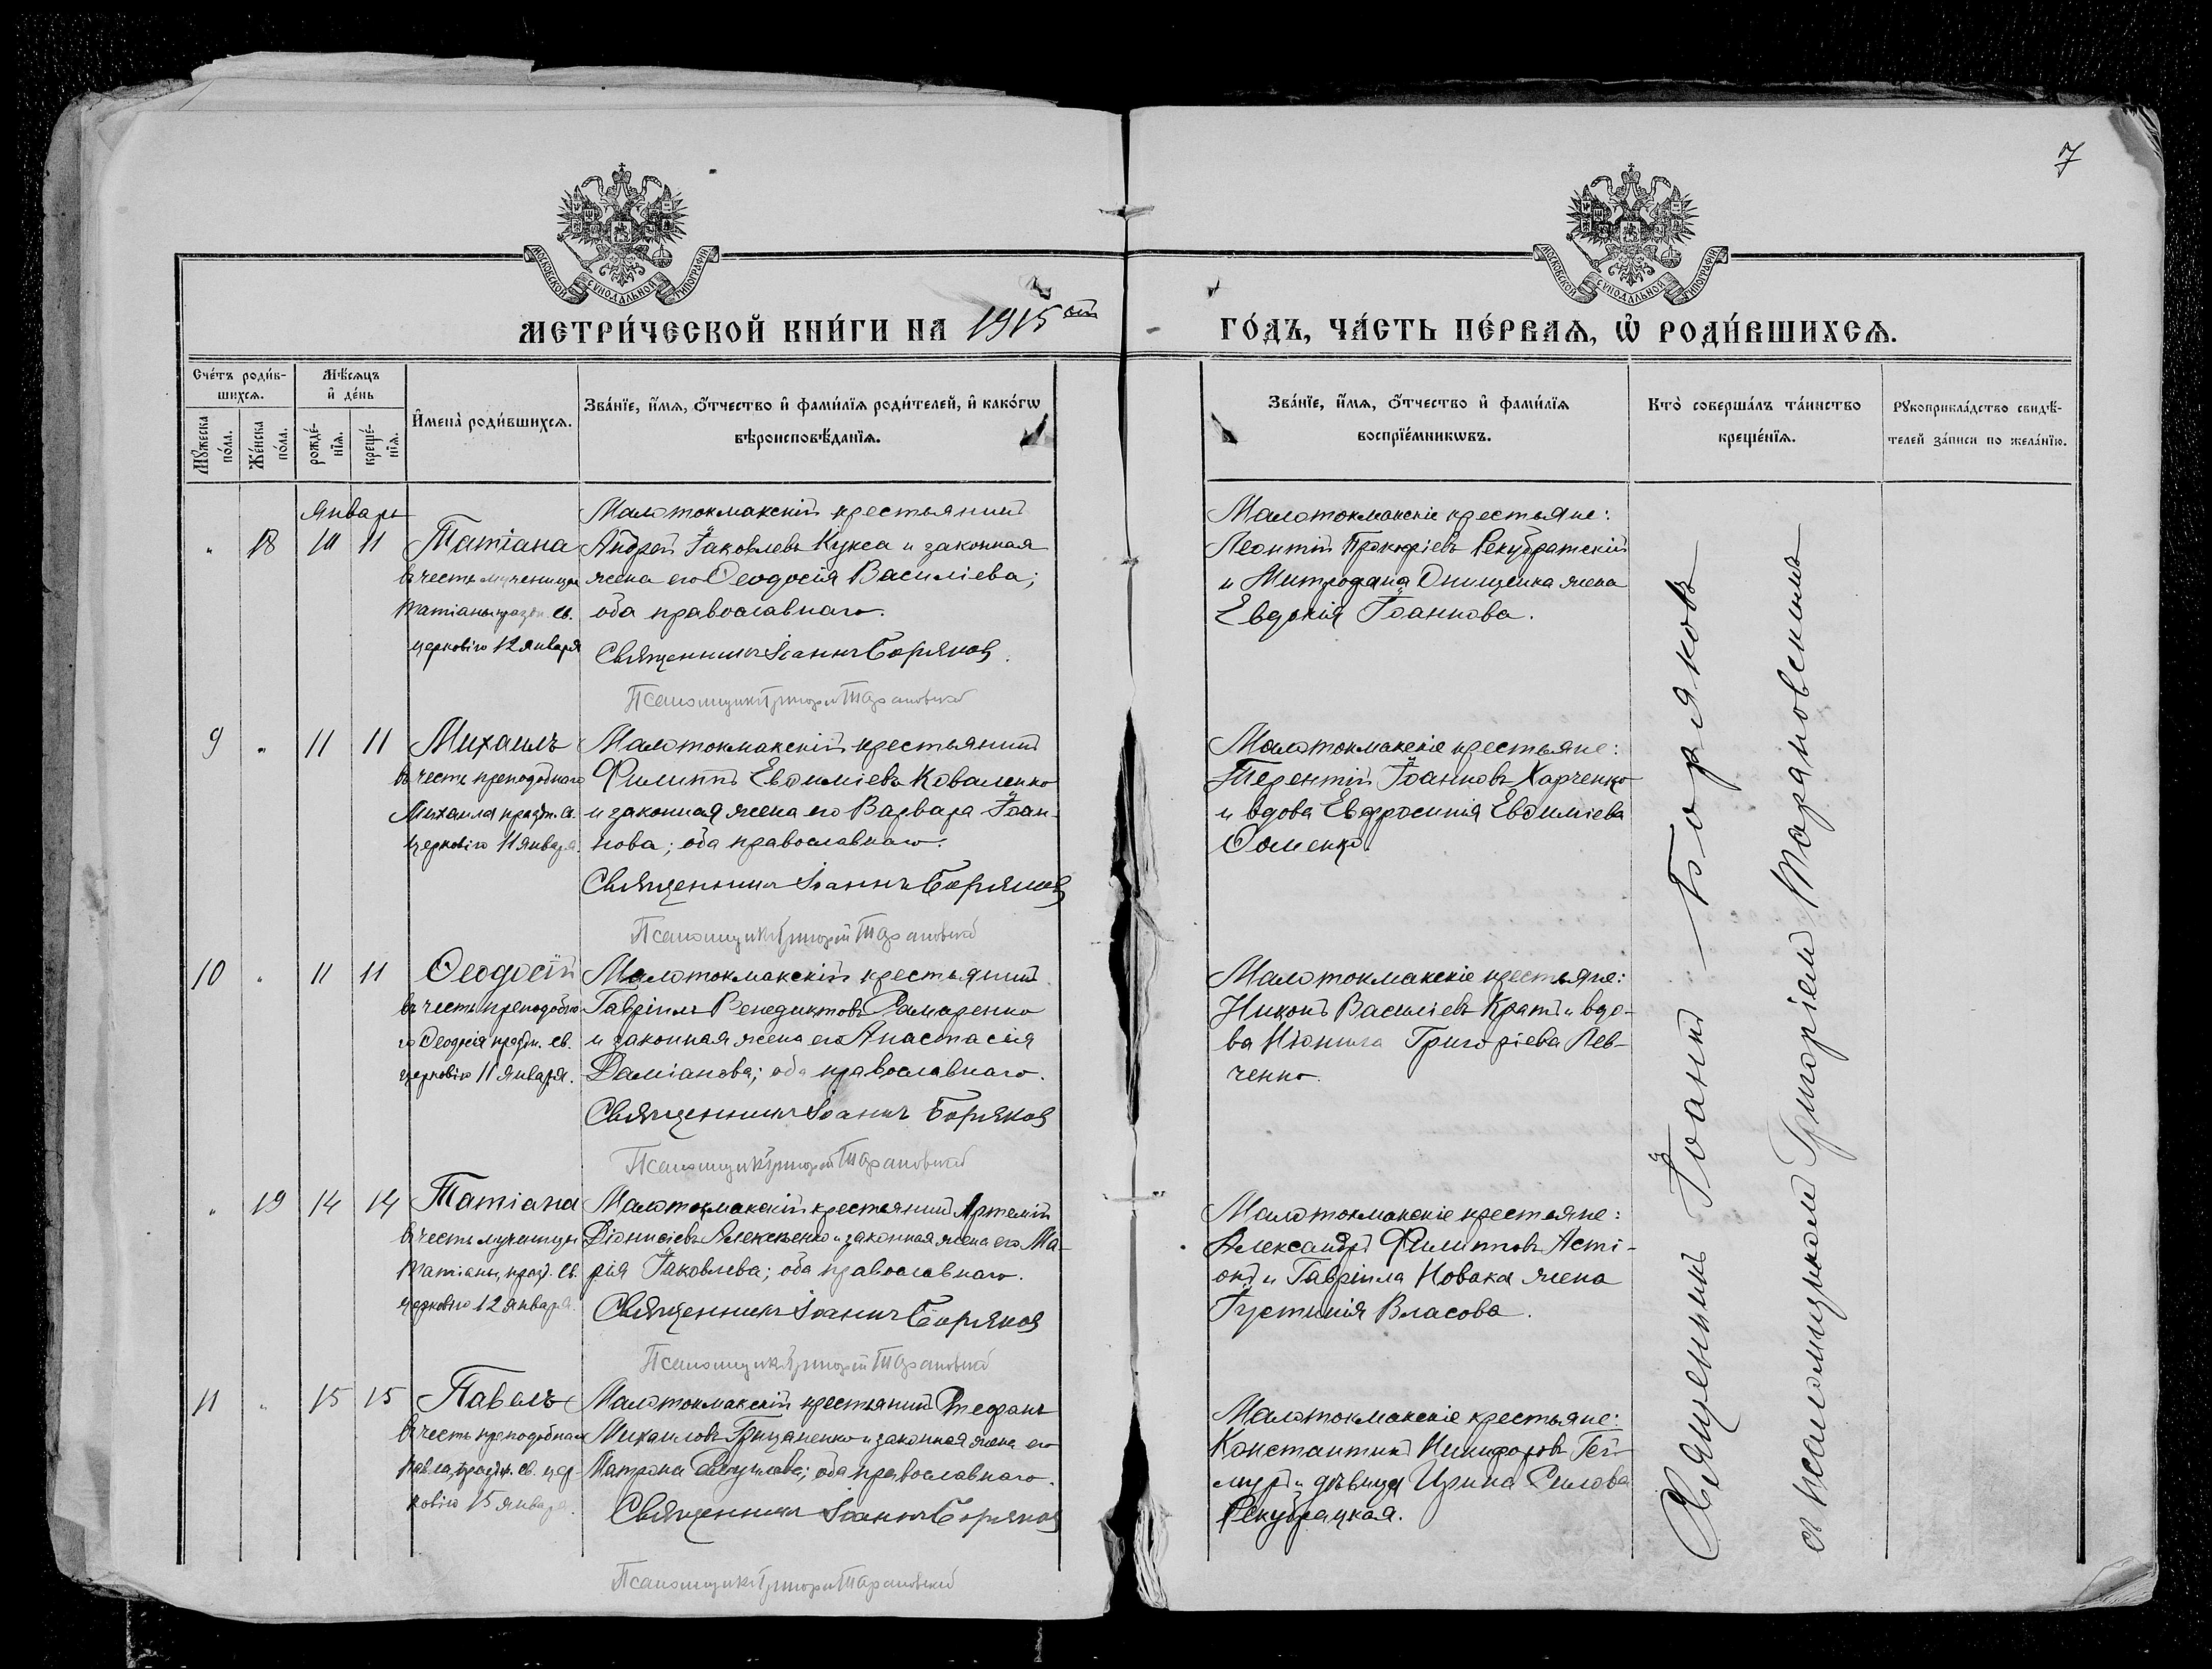 7
МОСКОВСКОЙ СѴНОДАЛЬНОЙ ТИПОГРАФІИ
МОСКОВСКОЙ СѴНОДАЛЬНОЙ ТИПОГРАФІИ
МЕТРИ́ЧЕСКОЙ КНИ́ГИ НА 1915 ый
ГО́ДЪ, ЧА́СТЬ ПЕ́РВАѦ, Ѡ҆ РОДИ́ВШИХСѦ.
Сче́тъ роди́в-
шихсѧ.
Мꙋ́жеска по́ла.
Же́нска по́ла.
Мѣ́сѧцъ
и҆ де́нь
рожде́-
нїѧ.
креще́-
нїѧ.
И҆мена̀ роди́вшихсѧ.
Зва́нїе, и҆́мѧ, ѻ҆́тчество и҆ фами́лїѧ роди́телей, и҆ како́гѡ
вѣроисповѣ́данїѧ.
Зва́нїе, и҆́мѧ, ѻ҆́тчество и҆ фами́лїѧ
воспрїе́мникѡвъ.
Кто̀ соверша́лъ та́инство
креще́нїѧ.
Рꙋкоприкла́дство свидѣ́-
телей за́писи по жела́нїю.
Январь
" 18 11
Татіана
въ честь мученицы
Татіаны празdн. св.
церковію 12 января
Малотокмакскій крестьянинъ
Андрей Іаковлевъ Кукса и законная
жена его Ѳеодосія Василіева;
оба православнаго.
Священникъ Іоаннъ Боряковъ
Псаломщикъ Григорій Тарановскій
Малотокмакскіе крестьяне:
Леонтій Прокофіевъ Рекубратскій
и Митрофана Онищенка жена
Евдокія Іоаннова.
9 " 11 11
Михаилъ
въ честь преподобнаго
Михаила праздн. св.
церковію 11 января.
Малотокмакскій крестьянинъ
Филиппъ Евѳиміевъ Коваленко
и законная жена его Варвара Іоан-
нова; оба православнаго.
Священникъ Іоаннъ Боряковъ
Псаломщикъ Григорій Тарановскій
Малотокмакскіе крестьяне:
Терентій Іоанновъ Харченко
и вдова Евфросинія Евѳиміева
Ѳоменко.
10 " 11 11
Ѳеодосій
въ честь преподобна-
го Ѳеодосія праздн. св.
церковію 11 января.
Малотокмакскій крестьянинъ
Гавріилъ Венедиктовъ Рамаренко
и законная жена его Анастасія
Даміанова; оба православнаго.
Священникъ Іоаннъ Боряковъ
Псаломщикъ Григорій Тарановскій
Малотокмакскіе крестьяне:
Никонъ Василіевъ Кратъ и вдо-
ва Григоріева Лев-
ченко.
" 19 14 14
Татіана
въ честь мученицы
Татіаны, празд. св.
церковію 12 января.
Малотокмакскій крестьянинъ Артемій
Діонисіевъ Алексѣенко и законная жена его Ма-
рія Іаковлева; оба православнаго.
Священникъ Іоаннъ Боряковъ
Псаломщикъ Григорій Тарановскій
Малотокмакскіе крестьяне:
Александръ Филипповъ Асті-
онъ и Гавріила Новака жена
Іустинія Власова.
11 " 15 15
Павелъ
въ честь преподобнаго
Павла, праздн. св. цер-
ковію 15 января.
Малотокмакскій крестьянинъ Стефанъ
Михаиловъ Грицаненко и законная жена его
Матрона; оба православнаго.
Священникъ Іоаннъ Боряковъ
Псаломщикъ Григорій Тарановскій
Малотокмакскіе крестьяне:
Константинъ Никифоровъ Гей-
муръ и дѣвица Ирина
Рекубрацкая.
Священникъ Іоаннъ Боряковъ
съ псаломщикомъ Григоріемъ Тарановскимъ